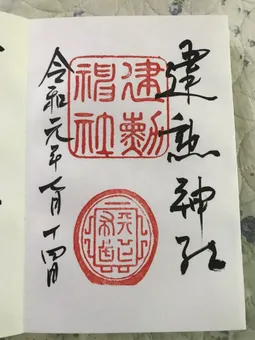 建勲神社
建勲
神社
令和元年七月十四日